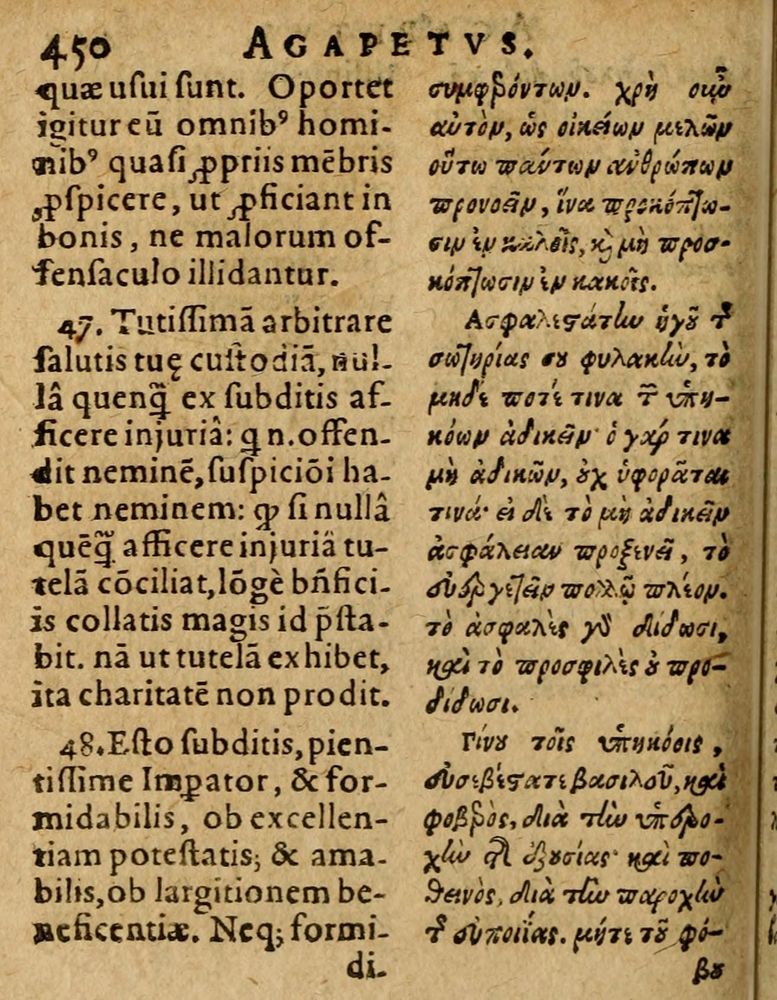 450 AGAPETVS.
quæ usui sunt. Oportet
igitur eū omnibꝰ homi-
nibꝰ quasi ꝓpriis mēbris
ꝓspicere, ut ꝓficiant in
bonis, ne malorum of-
fensaculo illidantur.
47. Tutissimā arbitrare
salutis tuę custodiā, nul-
lâ quenq̃ ex subditis af-
ficere injuriâ: q n. offen-
dit neminē, suspiciōi ha-
bet neminem: ꝙ si nullâ
quēq̃ afficere injuriâ tu-
telā cōciliat, lōgè bñfici-
is collatis magis id p̄sta-
bit. nā ut tutelā exhibet,
ita charitatē non prodit.
48. Esto subditis, pien-
tissime Imꝑator, & for-
midabilis, ob excellen-
tiam potestatis; & ama-
bilis, ob largitionem be-
neficentiæ. Neq; formi-
di-
συμφερόντων. χρὴ οὖν
αὐτὸν, ὡς οἰκείων μελῶν
οὕτω πάντων ἀνθρώπων
προνοεῖν, ἵνα προκόπτω-
σιν ἐν καλοῖς, καὶ μὴ προσ-
κόπτωσιν ἐν κακοῖς.
Ασφαλεστάτην ἡγοῦ τῆς
σωτηρίας σου φυλακὴν, τὸ
μηδέ ποτέ τινα τῶν ὑπη-
κόων ἀδικεῖν· ὁ γάρ τινα
μὴ ἀδικῶν, οὐχ ὑφορᾶται
τινά· εἰ δὲ τὸ μὴ ἀδικεῖν
ἀσφάλειαν προξενεῖ, τὸ
εὐεργετεῖν πολλῷ πλέον.
τὸ ἀσφαλὲς γὸ δίδωσι,
καὶ τὸ προσφιλὲς οὐ προ-
δίδωσι.
Γίνου τοῖς ὑπηκόοις,
εὐσεβέστατε βασιλεῦ, καὶ
φοβερὸς, διὰ τὴν ὑπερο-
χὴν τῆς ἐξουσίας· καὶ πο-
θεινὸς, διὰ τὴν παροχὴν
τῆς εὐποιΐας. μήτε τοῦ φό-
βου